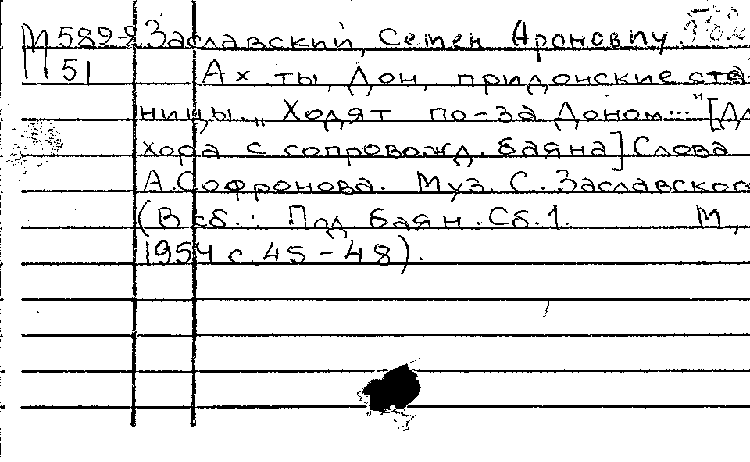 М 589-8 Заславский, Семен Аронович.
51 Ах ты, Дон, придонские ста-
ницы. „Ходят по-за Доном..." [Дл
хора с сопровожд. баяна] Слова
А.Софронова. Муз. С. Заславског
(В сб.: Под баян. Сб.1. М,
1954 с. 45-48).